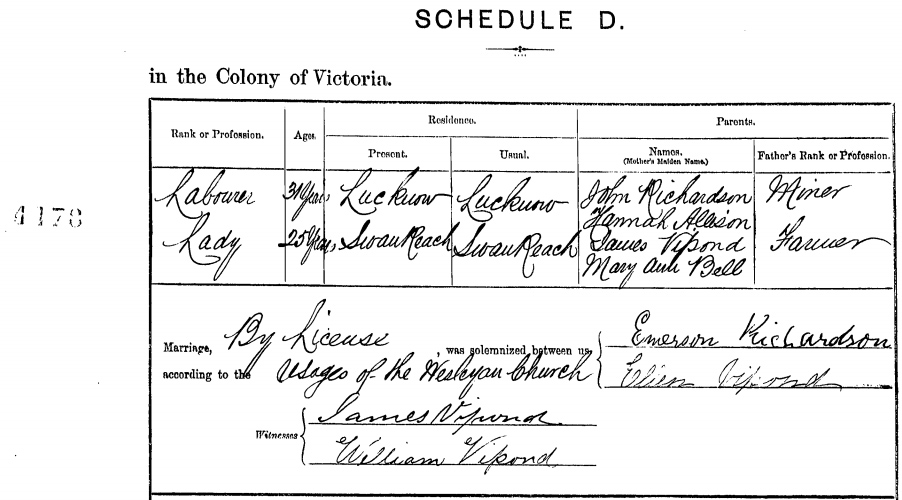 SCHEDULE D.
in the Colony of Victoria.
Rank or Profession. Ages. Residence. Parents.
Present. Usual. Names. (Mother's Maiden Name.) Father's Rank or Profession.
4178
Labourer 31 Years Lucknow Lucknow John Richardson Miner
Hannah Allison
Lady 25 Years Swan Reach Swan Reach James Vipond Farmer
Mary Ann Bell
Marriage, By License was solemnized between us Emerson Richardson
according to the Usages of the Wesleyan Church Ellen Vipond
Witnesses James Vipond
William Vipond